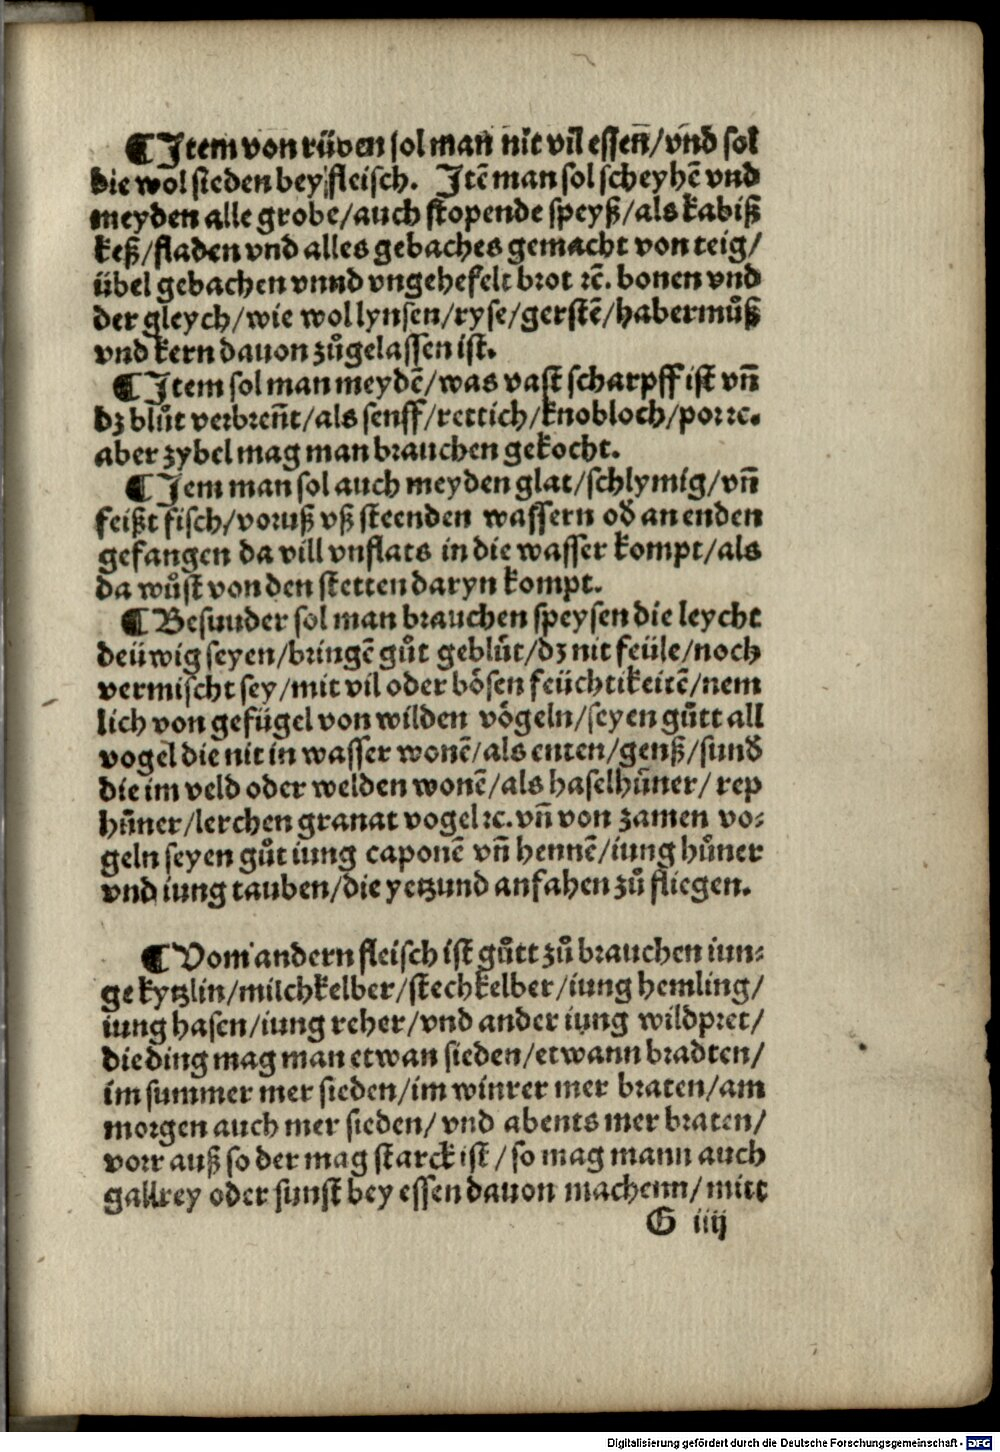 ¶ Item von rüben sol man nit vil essenn/vnd sol
die wol sieden bey fleisch. Itē man sol scheyhē vnd
meyden alle grobe/auch stopende speyß/als kabiß
keß/fladen vnd alles gebaches gemacht von teig/
übel gebachen vnnd vngehefelt brot ⁊c̄. bonen vnd
der gleych/wie wol lynsen/ryse/gerstē/habermůß
vnd kern dauon zůgelassen ist.
¶ Item sol man meydē/was vast scharpff ist vn̄
dz blůt verbren̄t/als senff/rettich/knobloch/por⁊c.
aber zybel mag man brauchen gekocht.
¶ Jem man sol auch meyden glat/schlymig/vn̄
feißt fisch/voruß vß steenden wassern od̕ an enden
gefangen da vill vnflats in die wasser kompt/als
da wůst von den stetten daryn kompt.
¶ Besunder sol man brauchen speysen die leycht
deüwig seyen/bringē gůt geblůt/dz nit feüle/noch
vermischt sey/mit vil oder bösen feüchtikeitē/nem
lich von gefügel von wilden vögeln/seyen gůtt all
vogel die nit in wasser wonē/als enten/genß/sund̕
die im veld oder welden wonē/als haselhůner/ rep
hůner/lerchen granat vogel ⁊c. vn̄ von zamen vo⸗
geln seyen gůt iung caponē vn̄ hennē/iung hůner
vnd iung tauben/die yetzund anfahen zů fliegen.
¶ Vom andern fleisch ist gůtt zů brauchen iun⸗
ge kytzlin/milchkelber/stechkelber/iung hemling/
iung hasen/iung reher/vnd ander iung wildpret/
die ding mag man etwan sieden/etwann bradten/
im summer mer sieden/im winter mer braten/am
morgen auch mer sieden/ vnd abents mer braten/
vorr auß so der mag starck ist/so mag mann auch
gallrey oder sunst bey essen dauon machenn/mitt
G iiij
Digitalisierung gefördert durch die Deutsche Forschungsgemeinschaft - DFG